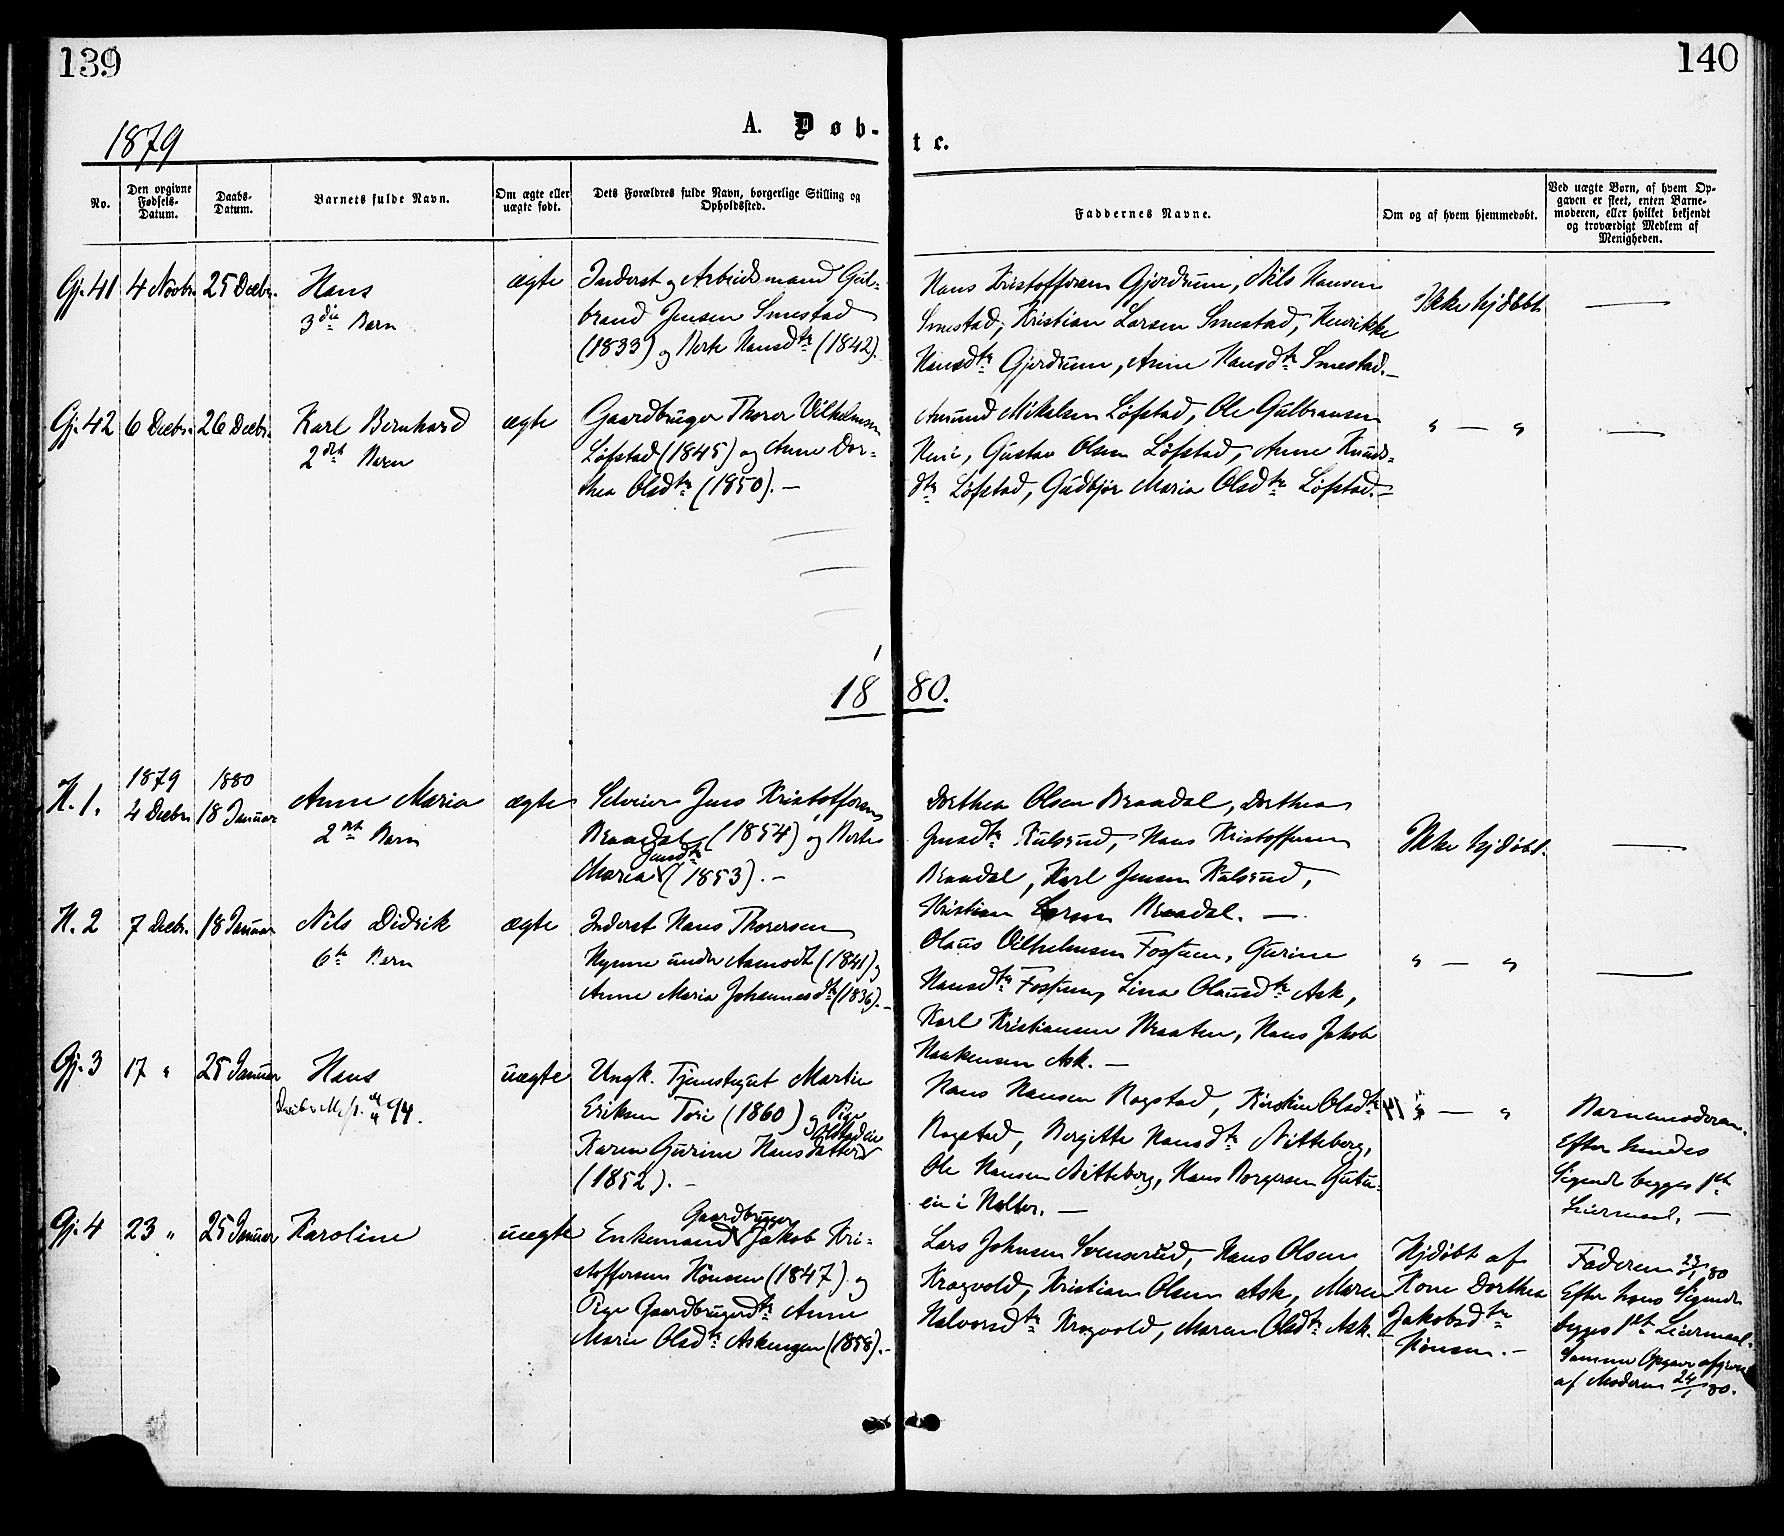 139
140
1879
A. Døb-
te.
No.
Den opgivne Fødsels-Datum.
Daabs-Datum.
Barnets fulde Navn.
Om ægte eller uægte født.
Dets Forældres fulde Navn, borgerlige Stilling og Opholdssted.
Faddernes Navne.
Om og af hvem hjemmedøbt.
Ved uægte Børn, af hvem Op-
gaven er skeet, enten Barne-
moderen, eller hvilket bekjendt
og troværdigt Medlem af
Menigheden.
Gj. 41
4 Novbr.
25 Decbr.
Hans
3die Barn
ægte
Inderst og Arbeidsmand Gul-
brand Jensen Smestad
(1833) og Berte Hansdtr (1842).
Hans Kristoffersen Gjerdrum, Nils Hansen
Smestad, Kristian Larsen Smestad, Henrikke
Hansdtr Gjerdrum, Anne Hansdtr Smestad.—
Ikke hjdøbt
—
Gj. 42
6 Decbr.
26 Decbr.
Karl Bernhard
2det Barn
ægte
Gaardbruger Thorer Vilhelmsen
Løfstad (1845) og Anne Dor-
thea Olsdtr (1850).—
Amund Mikalsen Løfstad, Ole Gulbransen
Heni, Gustav Olsen Løfstad, Anne Knuds-
dtr Løfstad, Gudbjør Maria Olsdtr Løfstad.—
" — "
—
1880.
H. 1.
1879
4 Decbr.
1880
18 Januar
Anne Maria
2det Barn
ægte
Selveier Jens Kristoffersen
Braadal (1854) og Berte
Maria Jensdtr (1853).—
Dorthea Olsen Braadal, Dorthea
Jensdtr Kulsrud, Hans Kristoffersen
Braadal, Karl Jensen Kulsrud,
Kristian Larsen Braadal.—
Ikke hjdøbt.
—
H. 2
7 Decbr.
18 Januar
Nils Didrik
6te Barn
ægte
Inderst Hans Thorersen
Hynne under Aamodt (1841) og
Anne Maria Johannesdtr (1836).—
Olaus Vilhelmsen Fossum, Gurine
Hansdtr Fossum, Lina Olausdtr Ask,
Karl Kristiansen Braaten, Hans Jakob
Haakensen Ask.—
" — "
—
Gj. 3
17 "
25 Januar
Hans
94.
uægte
Ungk. Tjenestegut Martin
Eriksen (1860) og Pige
Karen Gurine Hansdatter
(1852).—
Hans Hansen Rogstad, Kirstine Olsdtr
Rogstad, Bergitte Hansdtr Nitteberg,
Ole Hansen Nitteberg, Hans Borgersen Gutu-
en i Holter.—
" — "
Barnemoderen.
Efter hendes
Sigende begges 1ste
Leiermaal.—
Gj. 4
23 "
25 Januar
Karoline
uægte
Enkemand Gaardbruger Jakob Kri-
stoffersen Hønsen (1847) og
Pige Gaardbrugerdtr Anne
Marie Olsdtr Askengen (1858).—
Lars Johnsen Svenserud, Hans Olsen
Kragvold, Kristian Olsen Ask, Maren
Halvorsdtr Kragvold, Maren Olsdtr Ask.—
Hjdøbt af
Kone Dorthea
Jakobsdtr
Hønsen.—
Faderen 23/1 80
Efter hans Sigende
begges 1ste Leiermaal.
Samme Opgave afgiven
af Moderen 24/1 80.